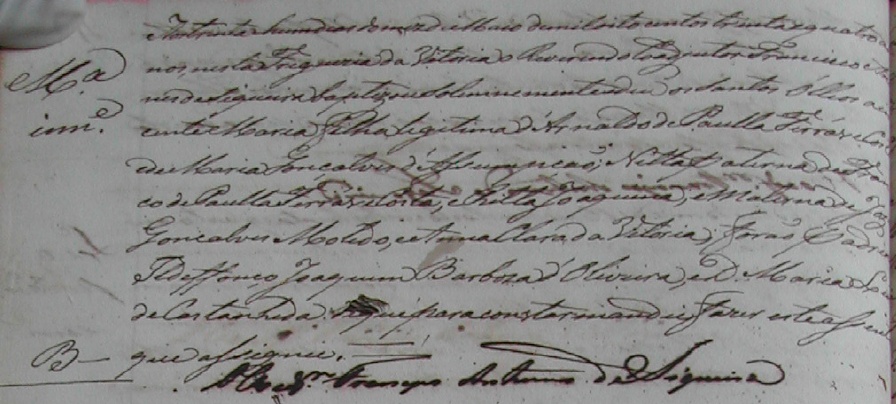 Aos trinta hum dias do mez de Maio de mil oito centos trinta e quatro
nos, nesta Freguezia da Vitoria o Reverendo Coadjutor Francisco
de Siqueira baptizou solemnemente e deu os Santos Olios a
M.ª
inn.e
cente Maria Filha legitima d'Arnaldo de Paulla Ferráz e
de Maria Gonçalves d'Assumpicaõ, Netta paterna de
co de Paulla Ferráz e Costa, e Ritta Joaquina, e Materna de
Gonçalves Molêdo, e Anna Clara da Vitoria; Foraõ Padri
Idelffonço Joaquim Barboza d'Oliveira, e D. Maria
de Castanheda para constar mandei fazer este assen
B
que assignei.
Francisco Antunes de Siqueira